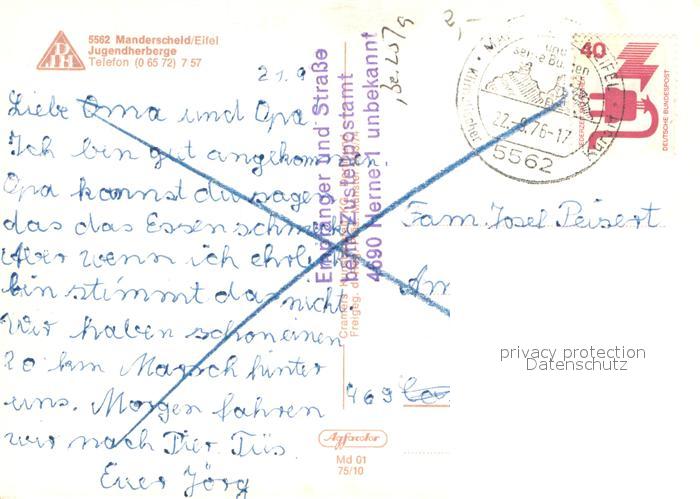 5562 Manderscheid/Eifel
Jugendherberge
Telefon (0 65 72) 7 57
21.9
Liebe Oma und Opa.
Ich bin gut angekommen.
Opa kannst du sagen
das das Essen schmeckt
Aber wenn ich ehrlich
bin stimmt das nicht.
Wir haben schon einen
20 km Marsch hinter
uns. Morgen fahren
wir nach Trier. Tüs
Euer Jörg
Empfänger und Straße
beim Zustellpostamt
4690 Herne 1 unbekannt
2,-
und
seine Burgen
22.-9.76-17
5562
40
JEDERZEIT
DEUTSCHE BUNDESPOST
Fam. Josef Peisert
Am
469
privacy protection
Datenschutz
Agfacolor
Md 01
75/10